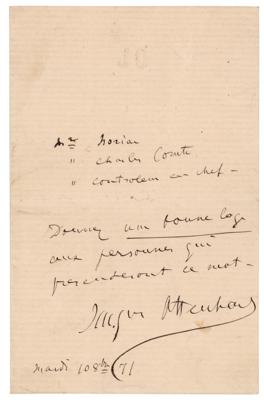 Mr Noriac
" Charles Comte
" controleur en chef -
Donnez une bonne loge
aux personnes qui
presenteront ce mot -
Jacques Offenbach
mardi 10 8bre 71